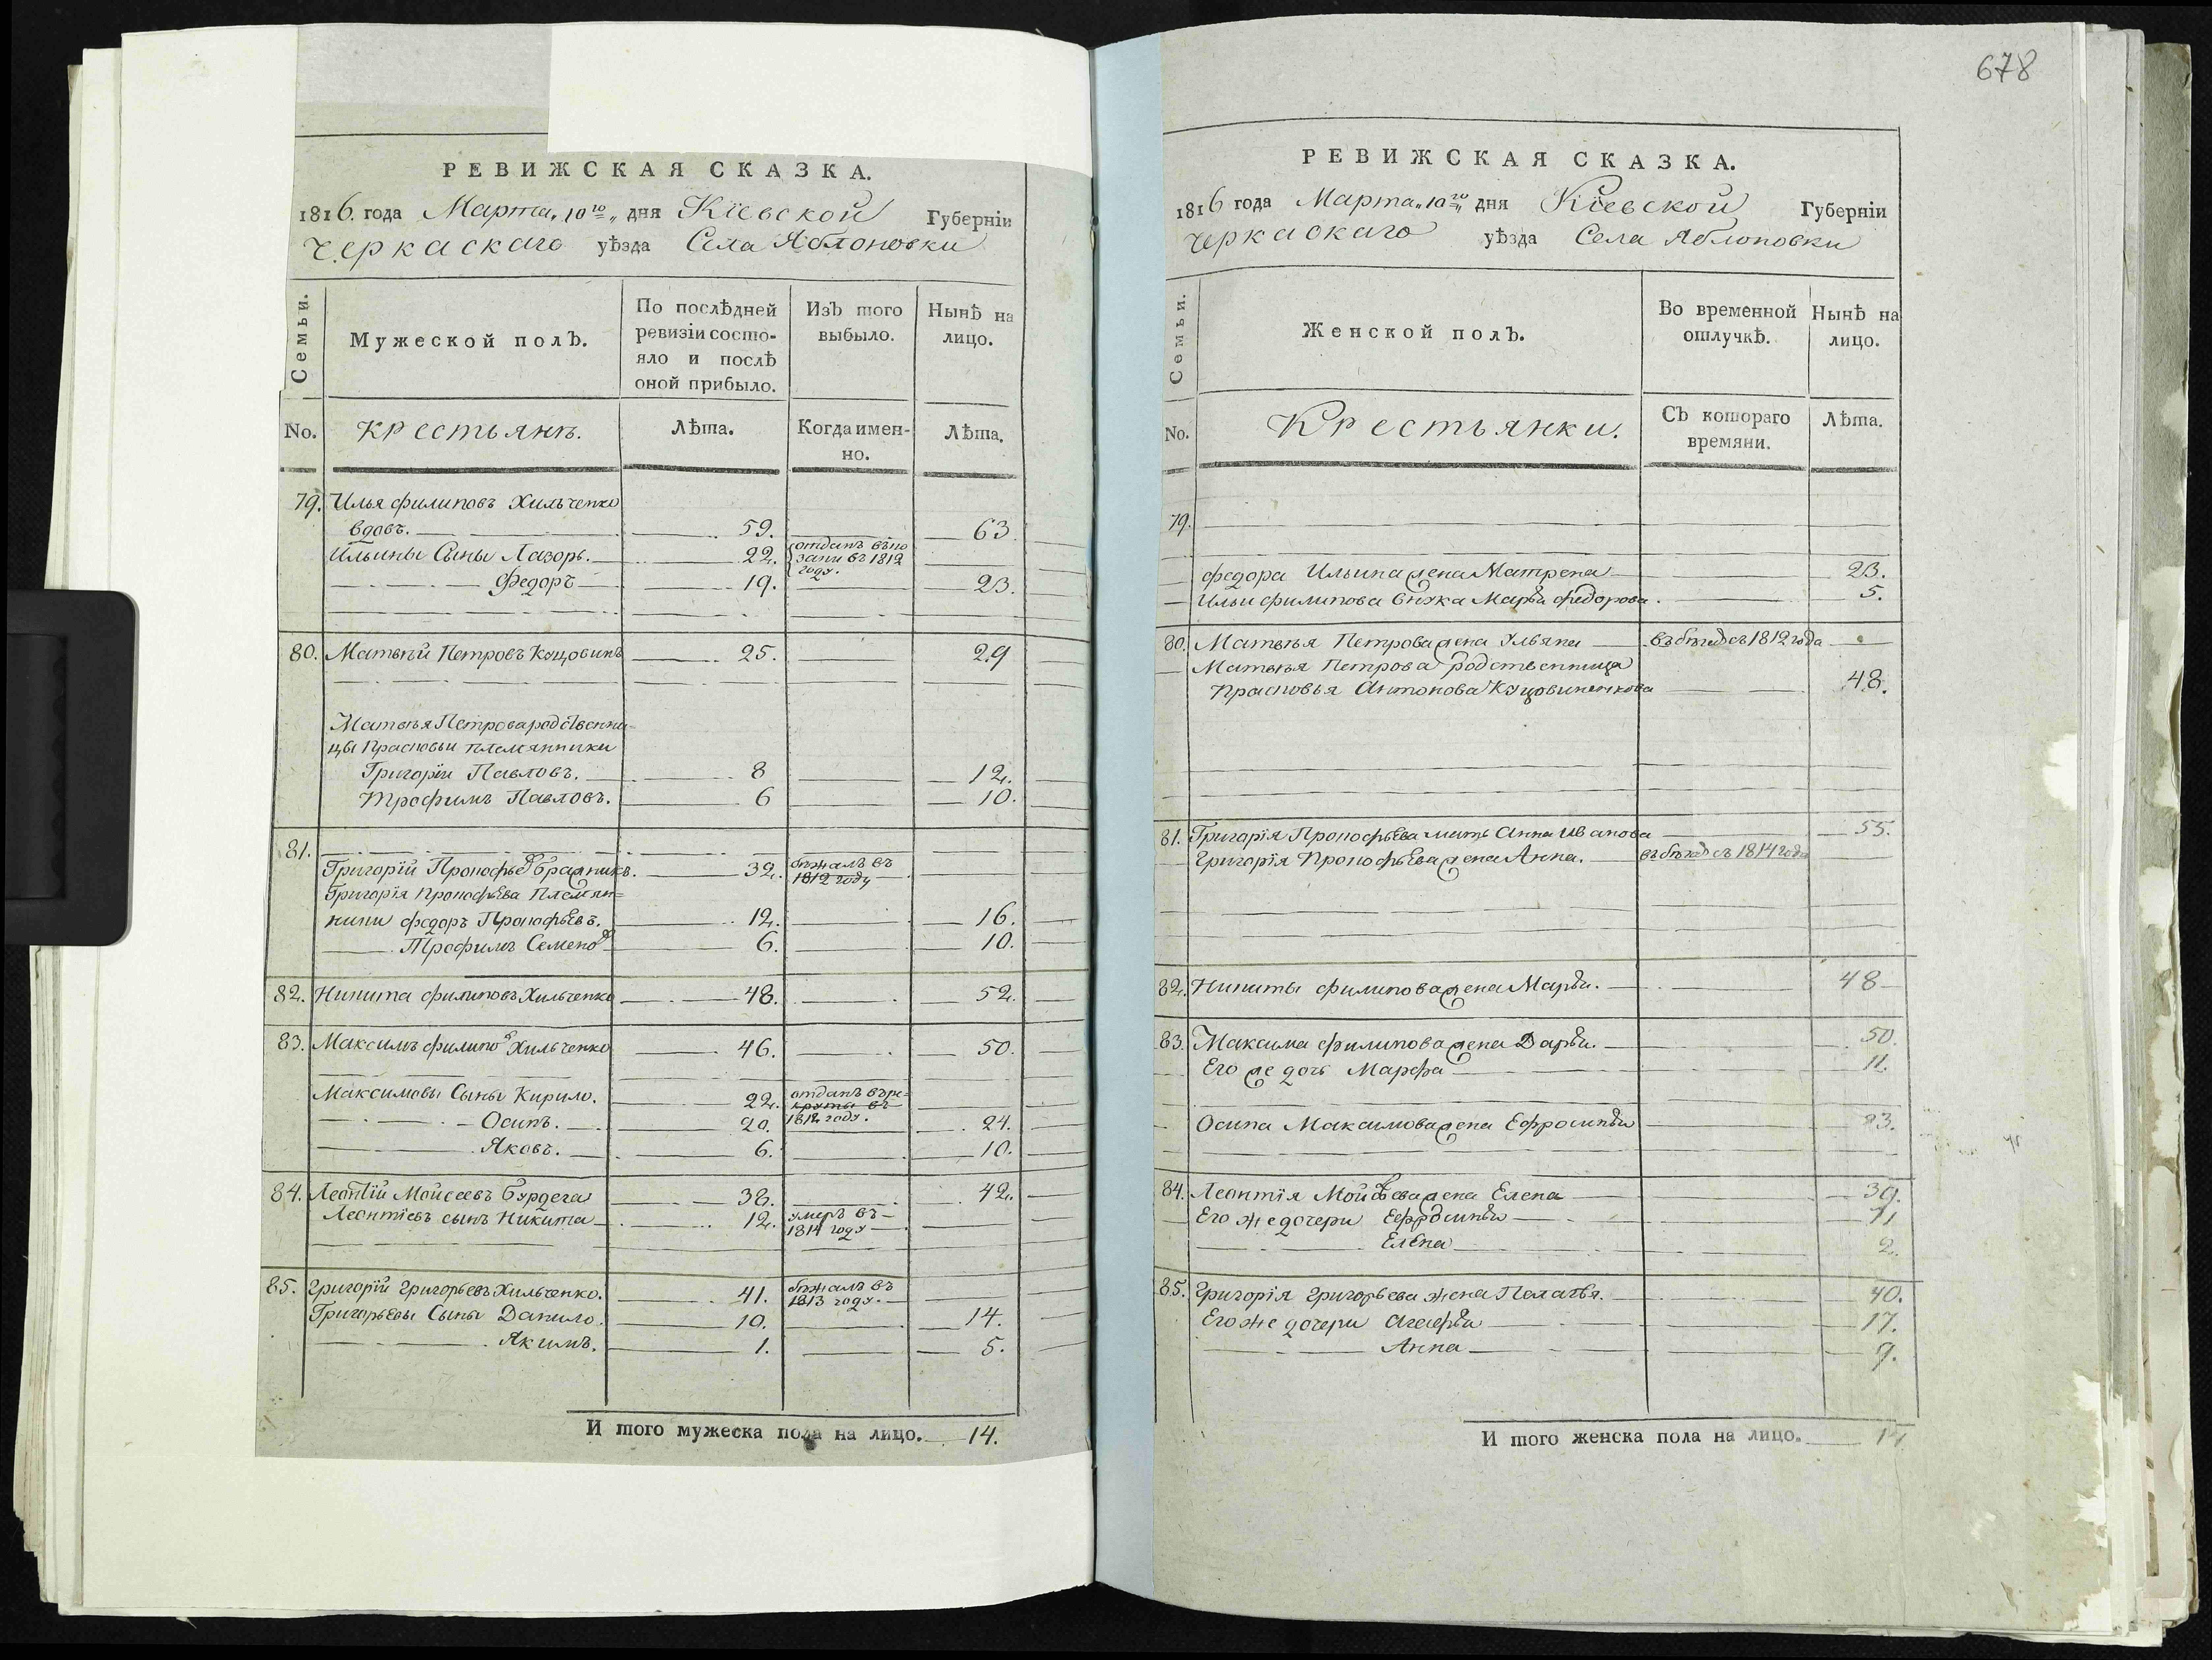 678
РЕВИЖСКАЯ СКАЗКА.
1816. года Марта „10го„ дня Кіевской Губерніи
Черкаскаго уѣзда Села Яблоновки
Семьи.
Мужеской полЪ.
По послѣдней ревизіи состо-
яло и послѣ оной прибыло.
ИзЪ того выбыло.
НынѢ на лицо.
No.
Крестьянъ.
ЛѢта.
Когда имен-
но.
ЛѢта.
79. Илья филиповъ Хильченко
вдовъ. 59. 63
Ильины Сыны Лазорь. 22. отданъ въ
въ 1812
году.
Федоръ 19. 23.
80. Матвѣй Петровъ Куцовинъ 25. 29
Матвѣя Петрова родственни
цы Прасковьи племянники
Григорій Павловъ. 8 12.
Трофимъ Павловъ. 6 10.
81.
Григорій Прокофьевъ Бражникъ. 32. бѣжалъ въ
1812 году
Григорія Прокофьева Племян=
ники федоръ Прокофьевъ. 12. 16.
Трофимъ Семеновъ 6. 10.
82. Никита филиповъ Хильченко 48. 52.
83. Максимъ филиповъ Хильченко 46. 50.
Максимовы Сыны Кирило. 22. отданъ въ ре=
круты въ
1812 году.
Осипъ. 20. 24.
Яковъ. 6. 10.
84. Леонтій Мойсеевъ Бурдега 38. 42.
Леонтіевъ сынъ Никита 12. умеръ въ
1814 году
85. Григорій Григорьевъ Хильченко. 41. бѣжалъ въ
1813 году.
Григорьевы Сыны Данило. 10. 14.
Якимъ. 1. 5.
И того мужеска пола на лицо. 14.
РЕВИЖСКАЯ СКАЗКА.
1816 года Марта „10го„ дня Кіевской Губерніи
Черкаскаго уѣзда Села Яблоновки
Семьи.
Женской полЪ.
Во временной отлучкѢ.
НынѢ на лицо.
No.
Крестьянки.
СЪ котораго времяни.
ЛѢта.
79.
федора Ильина жена Матрена 23.
Ильи филипова внука Марья федорова. 5.
80. Матвѣя Петрова жена Ульяна въ бѣгахъ съ 1812 года
Матвѣя Петрова родственница
Прасковья Антонова Куцовиненкова 48.
81. Григорія Прокофьева мать Анна Иванова 55.
Григорія Прокофьева жена Анна. въ бѣгахъ съ 1814 года
82. Никиты филипова жена Марья. 48
83. Максима филипова жена Дарья. 50.
Его же дочь Марфа 11.
Осипа Максимова жена Ефросинья 23.
84. Леонтія Мойсѣева жена Елена 39.
Его же дочери Ефросинья 11
Елена 2.
85. Григорія Григорьева жена Пелагья. 40.
Его же дочери Агафья 17.
Анна 9.
И того женска пола на лицо. 14